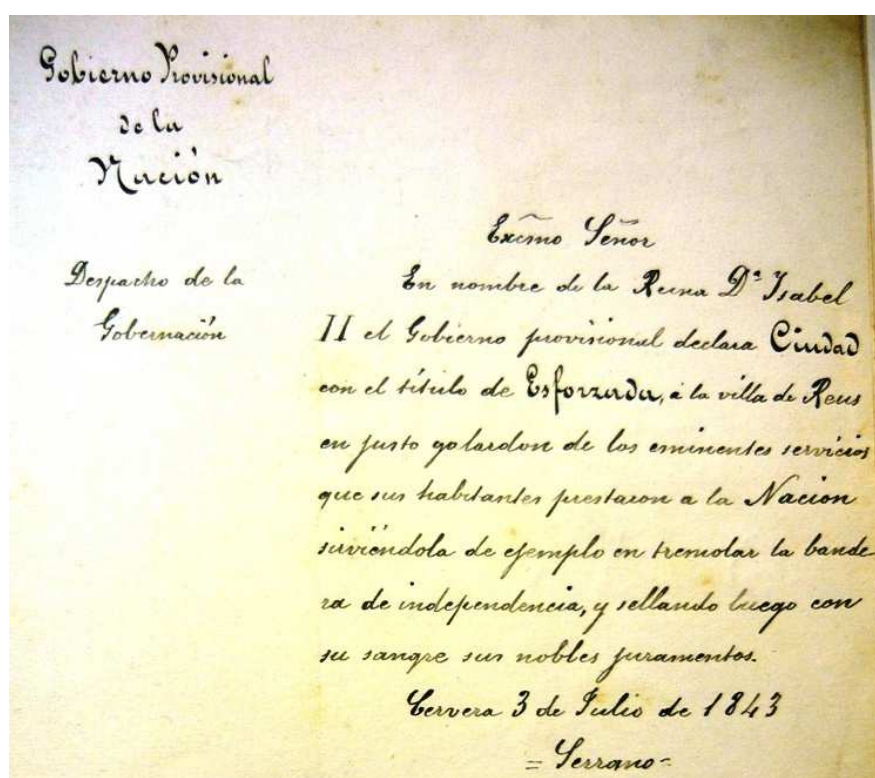 Gobierno Provisional
de la
Nación
Excmo Señor
Despacho de la
Gobernación
En nombre de la Reina Dª Isabel
II el Gobierno provisional declara Ciudad
con el título de Esforzada, á la villa de Reus
en justo galardon de los eminentes servicios
que sus habitantes prestaron a la Nacion
sirviéndola de ejemplo en tremolar la bande
ra de independencia, y sellando luego con
su sangre sus nobles juramentos.
Cervera 3 de Julio de 1843
= Serrano =